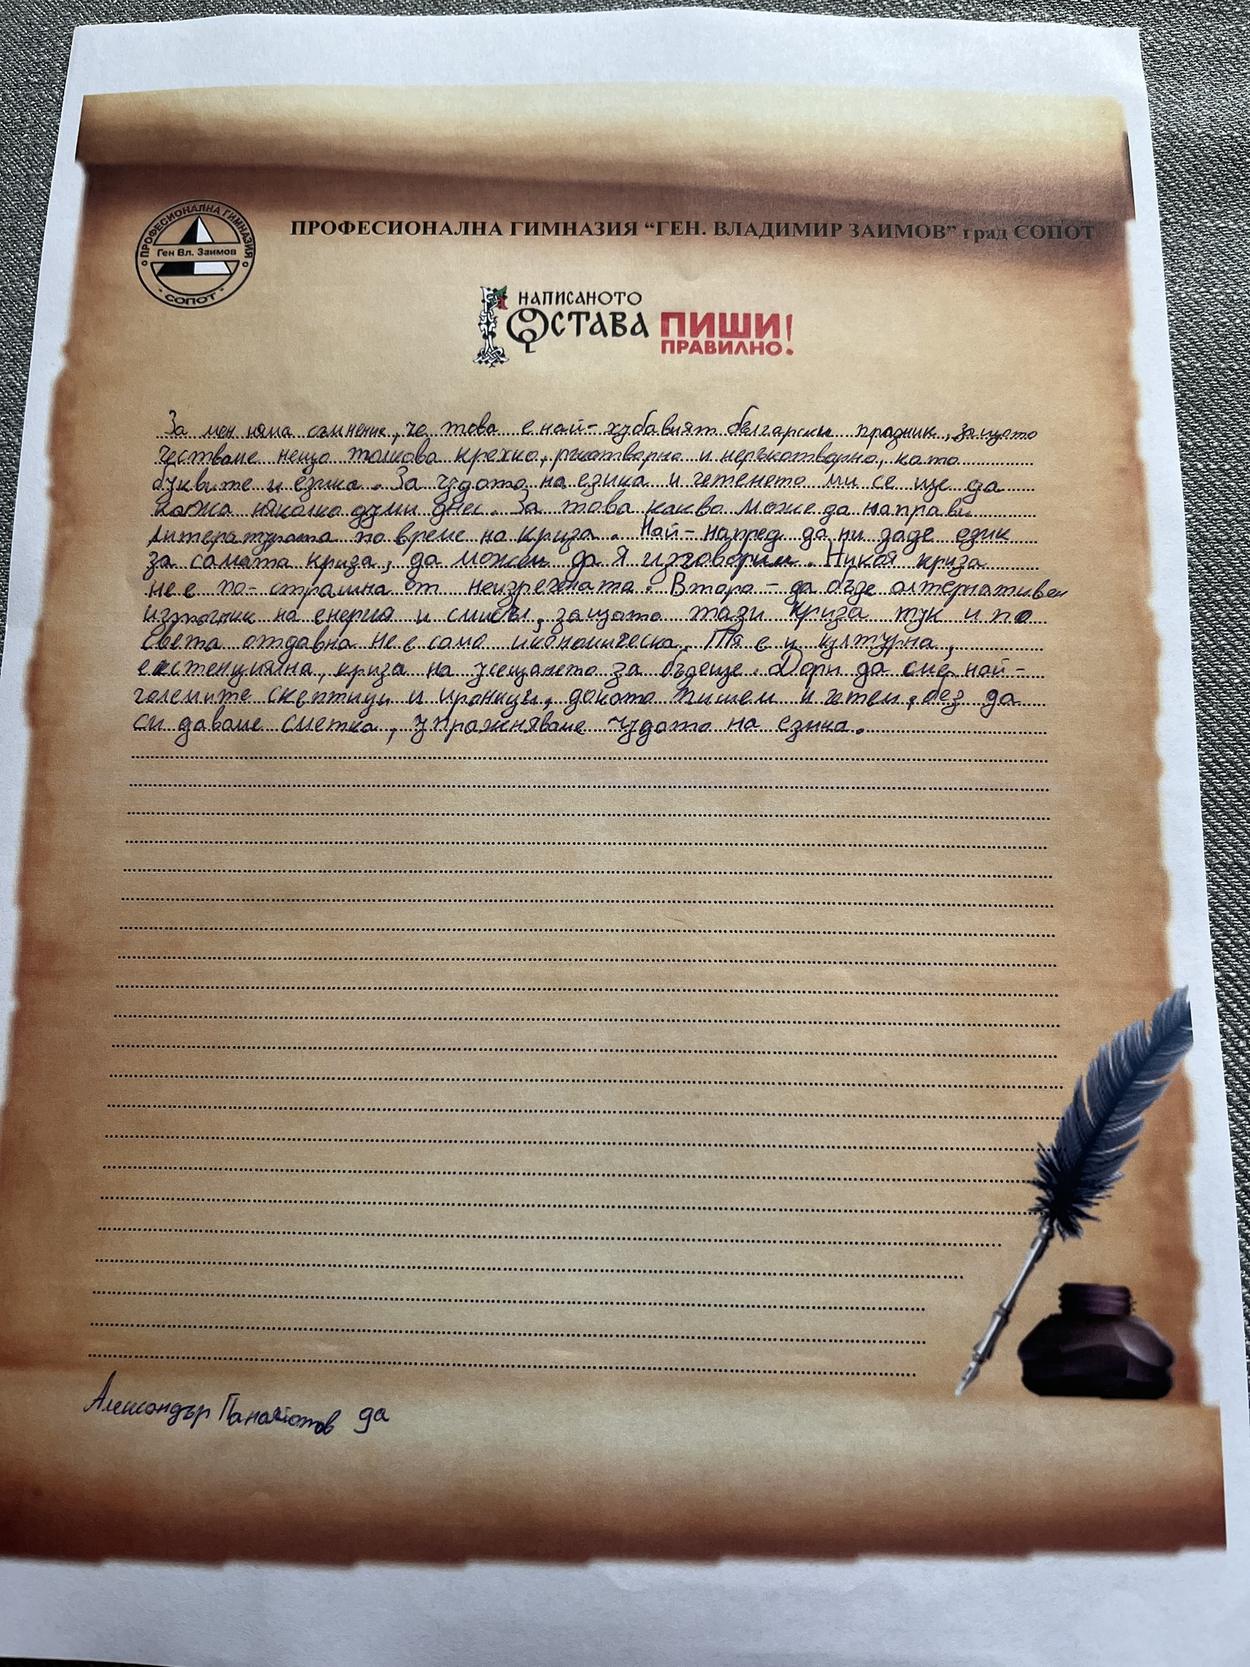 ПРОФЕСИОНАЛНА ГИМНАЗИЯ “ГЕН. ВЛАДИМИР ЗАИМОВ” град СОПОТ
ПРОФЕСИОНАЛНА ГИМНАЗИЯ
Ген Вл. Заимов
СОПОТ
НАПИСАНОТО
ОСТАВА ПИШИ!
ПРАВИЛНО!
За мен няма съмнение, че това е най-хубавият български празник, защото
честваме нещо толкова крехко, и неръкотворно, като
буквите и езика. За чудото на езика и четенето ми се ще да
кажа няколко думи днес. За това какво може да направи
литературата по време на криза. Най-напред да ни даде език
за самата криза, да можем да Я изговорим. Никоя криза
не е по-страшна от неизречената. Второ - да бъде алтернативен
източник на енергия и смисъл, защото тази криза тук и по
света отдавна не е само икономическа. Тя е и културна,
екстенциялна, криза на усещането за бъдеще. Дори да сме най-
големите скептици и ироници, докато пишем и четем, без да
си даваме сметка, упражняваме чудото на езика.
Александър Панайотов 9а